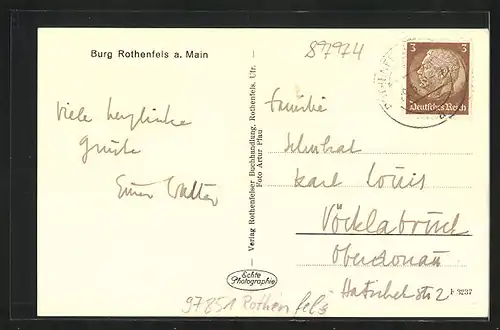 Burg Rothenfels a. Main
87974
3 3
Deutsches Reich
Viele herzliche
Grüße
Euer Walter
Verlag Rothenfelser Buchhandlung, Rothenfels, Ufr.
Foto Artur Pfau
Familie
Karl Louis
Vöcklabruck
Oberdonau
Hatschekstr. 2
Echte
Photographie
F 3237
97851 Rothenfels